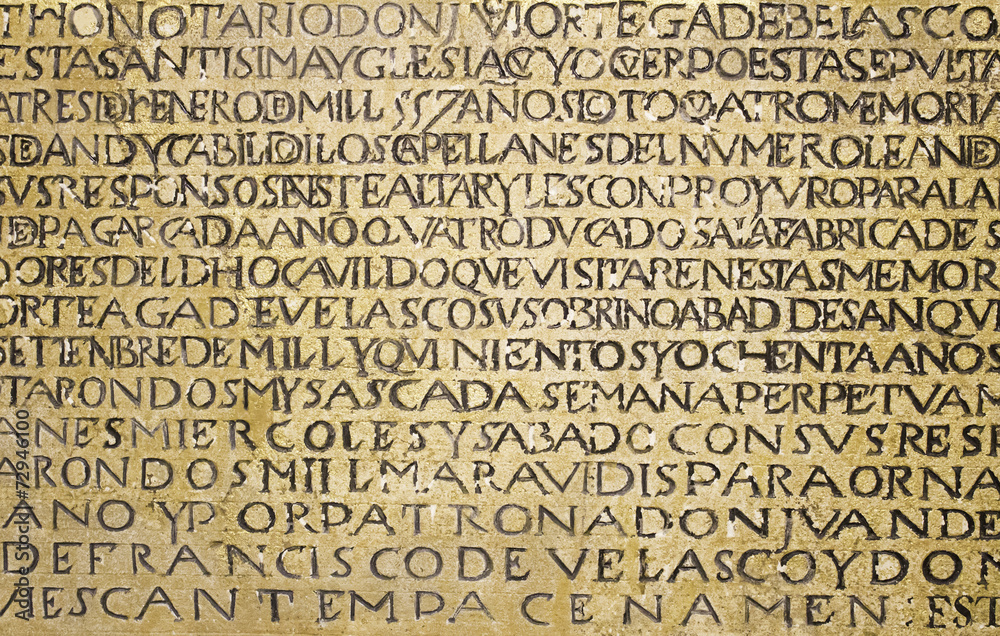 THONOTARIODONJVORTEGADEBELASCO
ESTASANTISIMAYGLESIACVYOCVERPOESTASEPVLTA
ATRESDENERODMILLSSZANOSDOTOQVATROMEMORIA
SEDANDYCABILDILOSCAPELLANESDELNVMEROLEANDE
SVSRESPONSOSENESTEALTARYLESCONPROYVROPARALA
DEPAGARCADAANOQVATRODVCADOSALAFABRICADES
DORESDELDHOCAVILDOQVEVISITARENESTASMEMOR
ORTEAGADEVELASCOSVSOBRINOABADDESANQVI
SETTENBREDEMILLYQVINIENTOSYOCHENTAANOS
OTARONDOSMYSASCADASEMANAPERPETVAM
ANESMIERCOLESYSABADOCONSVSRESP
ARONDOSMILLMARAVEDISPARAORNA
ANOYPORPATRONADONJVANDE
DEFRANCISCODEVELASCOYDON
VESCANTEMPACENAMEN.EST
Adobe Stock | #72946100